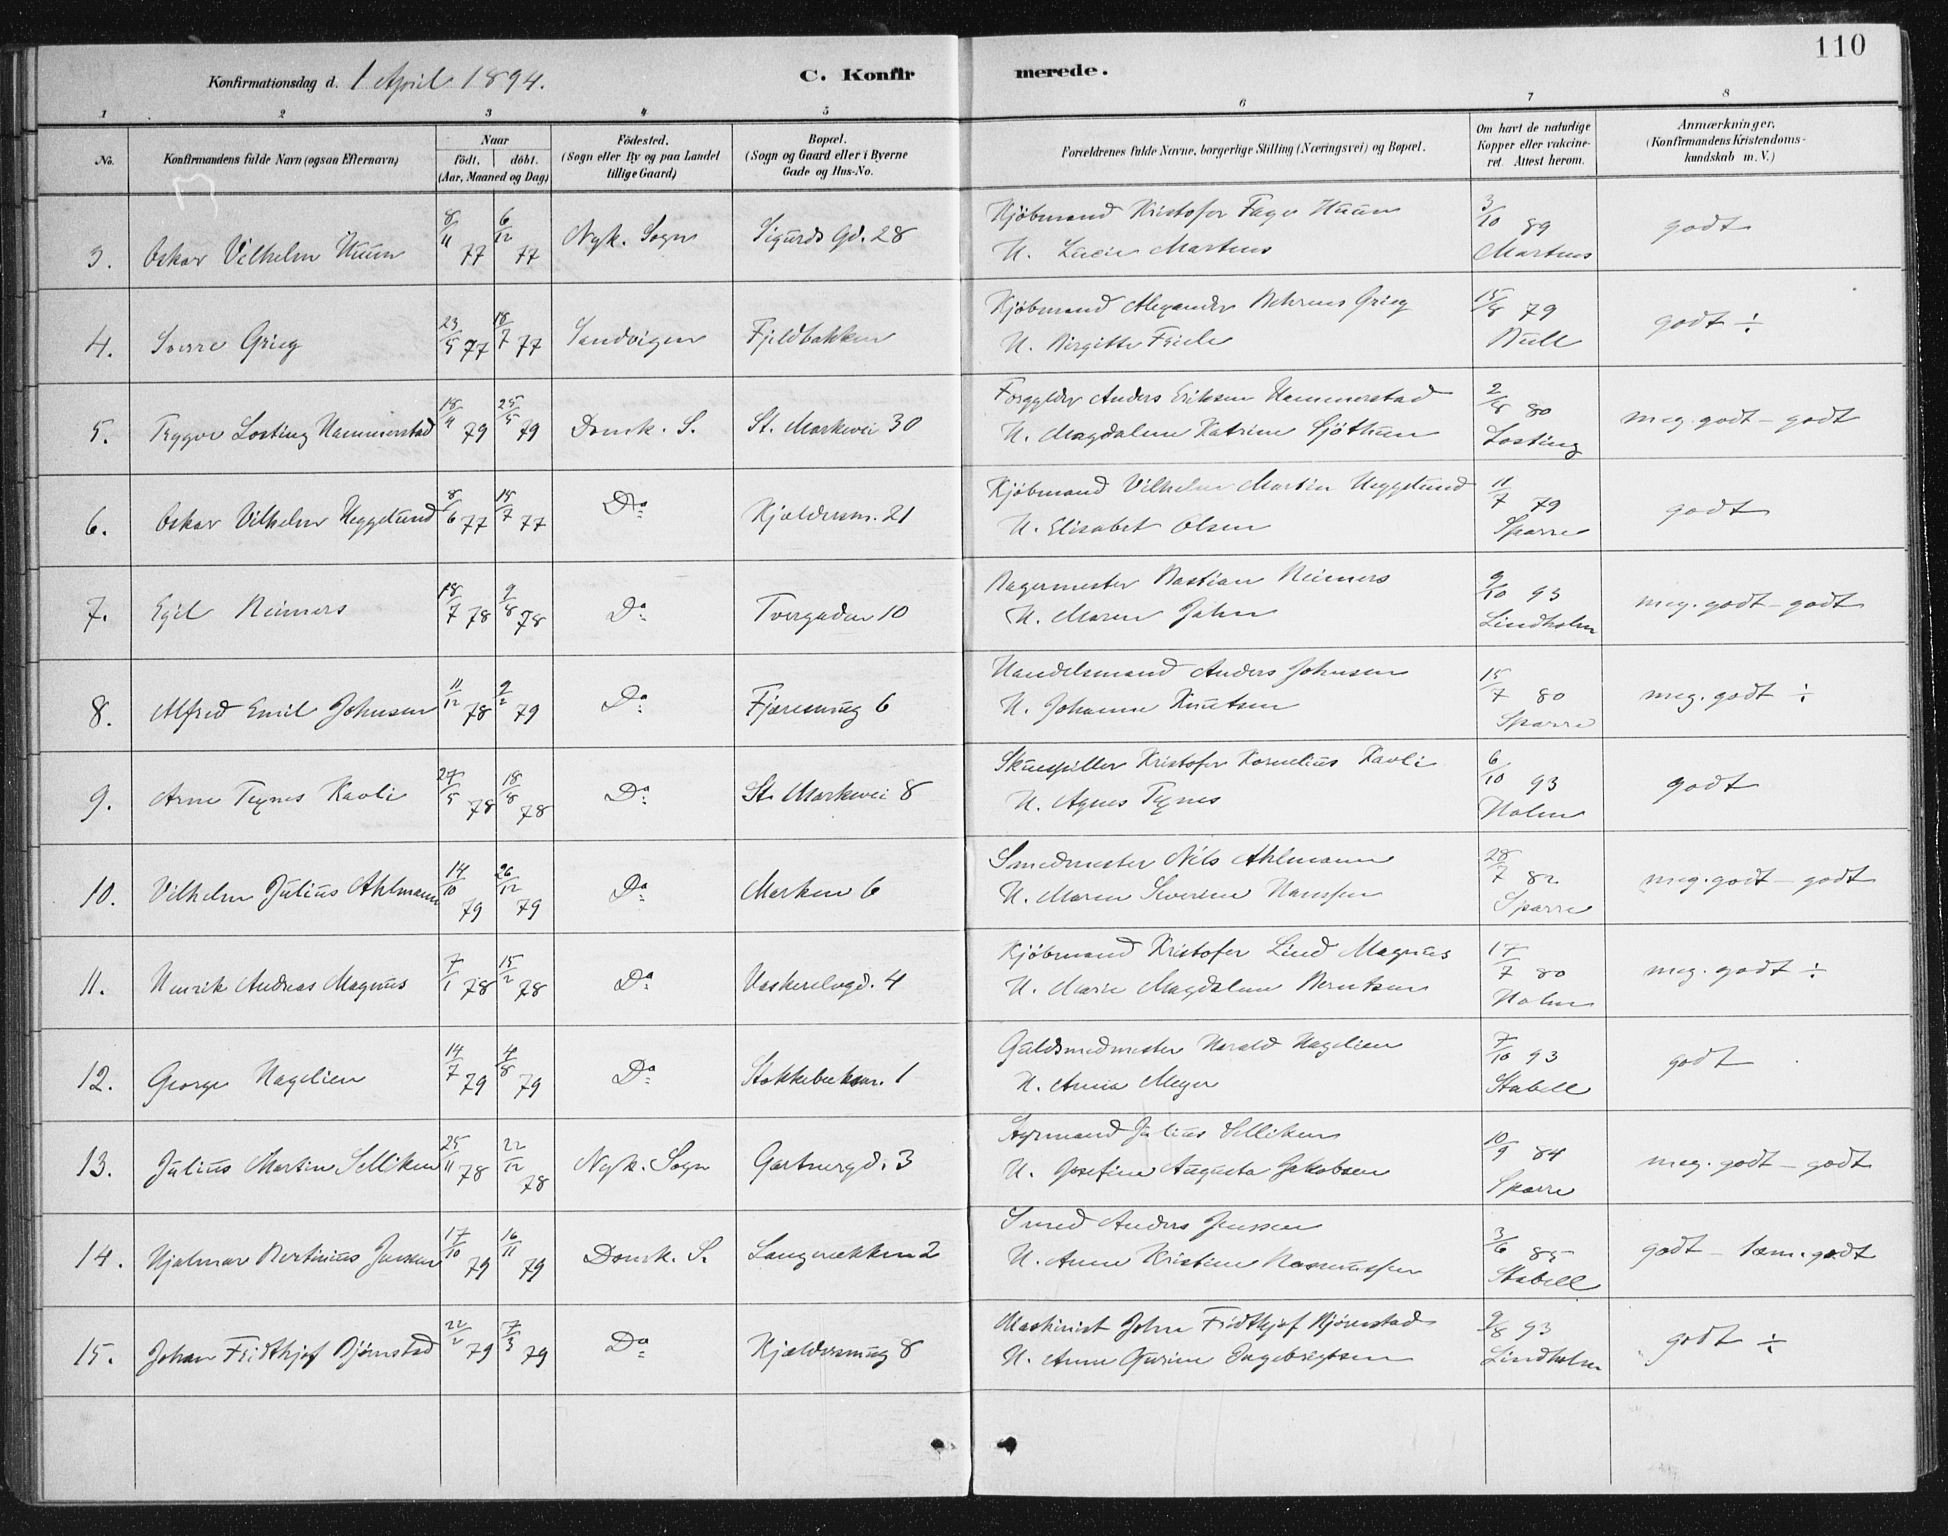 110
Konfirmationsdag d. 1 April 1894.
C. Konfirmerede.
1 2 3 4 5 6 7 8
No.
Konfirmandens fulde Navn (ogsaa Efternavn)
Naar
födt. | döbt.
(Aar, Maaned og Dag)
Födested.
(Sogn eller By og paa Landet
tillige Gaard)
Bopæl.
(Sogn og Gaard eller i Byerne
Gade og Hus-No.
Forældrenes fulde Navne, borgerlige Stilling (Næringsvei) og Bopæl.
Om havt de naturlige
Kopper eller vakcine-
ret. Attest herom.
Anmærkninger.
(Konfirmandens Kristendoms-
kundskab m. V.)
3. Oskar Vilhelm Huun 8/11 77 6/12 77 Nyk. Sogn Sigurds Gd. 28 Kjöbmand Kristofer Fager Huun 3/10 89 godt
H. Lucie Martens Martens
4. Sverre Grieg 23/5 77 18/7 77 Sandvigen Fjeldbakken Kjöbmand Alexander Behrens Grieg 15/8 79 godt ÷
H. Birgitte Friele Bull
5. Trygve Losting Hammerstad 18/4 79 25/5 79 Domk. S. St. Markevei 30 Forgylder Anders Eriksen Hammerstad 2/8 80 meg. godt - godt
H. Magdalene Katrine Sjöthun Losting
6. Oskar Vilhelm Heggelund 8/6 77 15/7 77 Do Kjældersm. 21 Kjöbmand Vilhelm Martin Heggelund 11/7 79 godt
H. Elisabet Olsen Sparre
7. Egil Reimers 18/7 78 9/8 78 Do Tvergaden 10 Bagermester Bastian Reimers 9/10 93 meg. godt - godt
H. Maren Jahn Lindholm
8. Alfred Emil Johnsen 11/12 78 9/2 79 Do Fjæresmug 6 Handelsmand Anders Johnsen 15/7 80 meg. godt ÷
H. Johanne Knutsen Sparre
9. Arne Tynes Kavli 27/5 78 18/8 78 Do St. Markevei 8 Skuespiller Kristofer Kornelius Kavli 6/10 93 godt
H. Agnes Tynes Holm
10. Vilhelm Julius Ahlmann 14/10 79 26/12 79 Do Marken 6 Smedmester Nils Ahlmann 28/7 82 meg. godt - godt
H. Maren Severine Hanssen Sparre
11. Henrik Andreas Magnus 7/1 78 15/2 78 Do Vaskerelvgd. 4 Kjöbmand Kristofer Lind Magnus 17/7 80 meg. godt ÷
H. Marie Magdalene Berntsen Holm
12. George Hagelien 14/7 79 4/8 79 Do 1 Guldsmedmester Harald Hagelien 7/10 93 godt
H. Anna Meyer Stabell
13. Julius Martin Selliken 25/11 78 22/12 78 Nyk. Sogn Gartnergd. 3 Styrmand Julius Selliken 10/9 84 meg. godt - godt
H. Josefine Augusta Jakobsen Sparre
14. Hjalmar Bertinius Jenssen 17/10 79 16/11 79 Domk. S. Langerækken 2 Smed Anders Jenssen 3/6 85 godt - tem. godt
H. Anne Kristine Rasmussen Stabell
15. Johan Fridthjof Björnstad 22/2 79 7/3 79 Do Kjældersmug 8 Maskinist John Fridthjof Björnstad 9/8 93 godt ÷
H. Anne Gurine Ingebrigtsen Lindholm